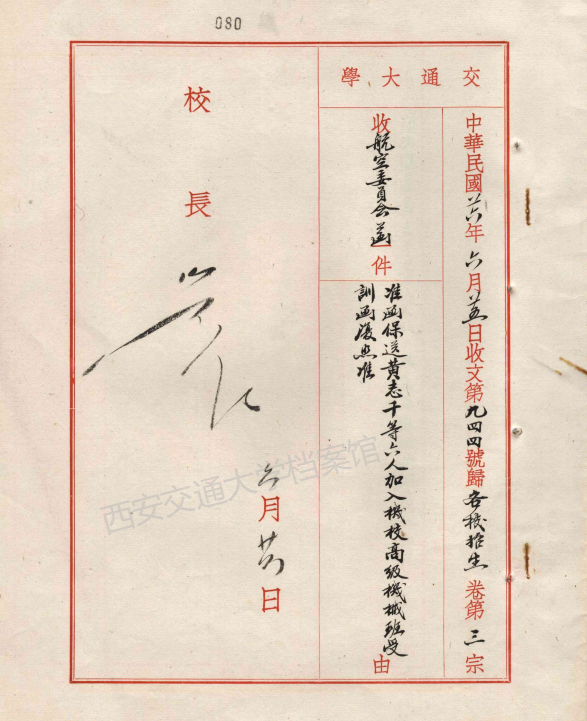 080
交通大學
中華民國廿六年六月廿五日收文第九四四號歸各校招生卷第三宗
收航空委員會函一件
准函保送黃志千等六人加入機校高級機械班受
訓函復照准
由
校長
六月日
西安交通大学档案馆